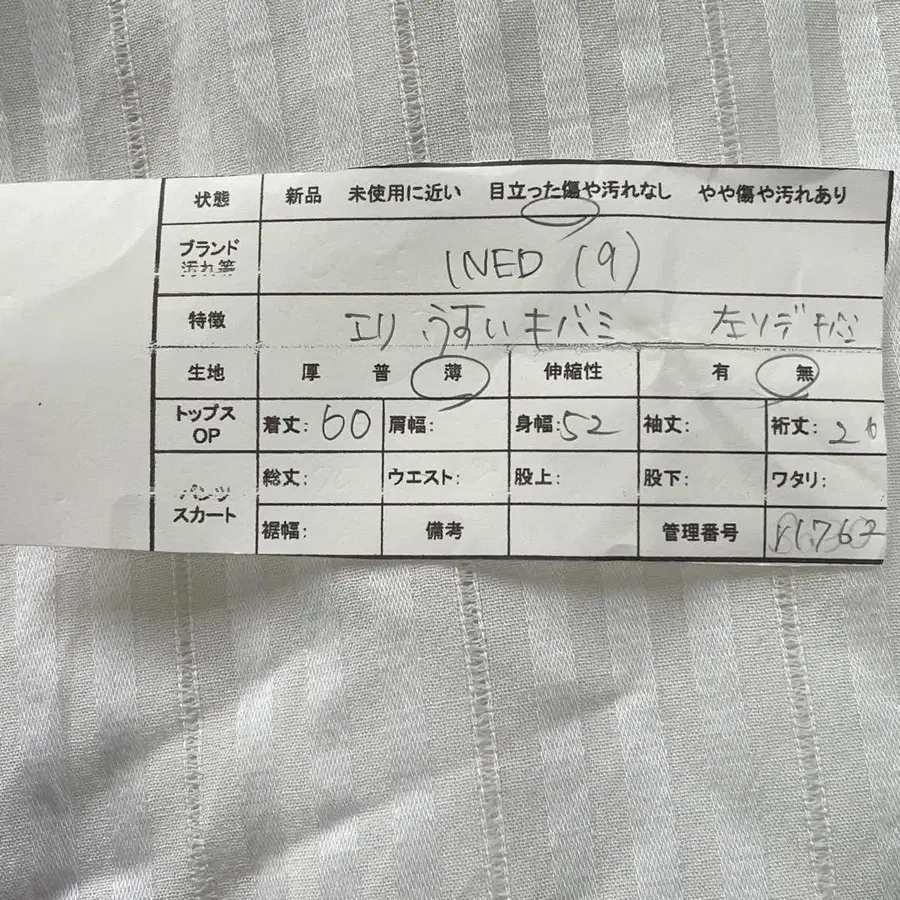 状態 新品 未使用に近い 目立った傷や汚れなし やや傷や汚れあり
ブランド
汚れ等 INED (9)
特徴 エリ うすいキバミ 左ソデ キバミ
生地 厚 普 薄 伸縮性 有 無
トップス
OP 着丈: 60 肩幅: 身幅: 52 袖丈: 裄丈: 26
パンツ
スカート 総丈: ウエスト: 股上: 股下: ワタリ:
裾幅: 備考 管理番号